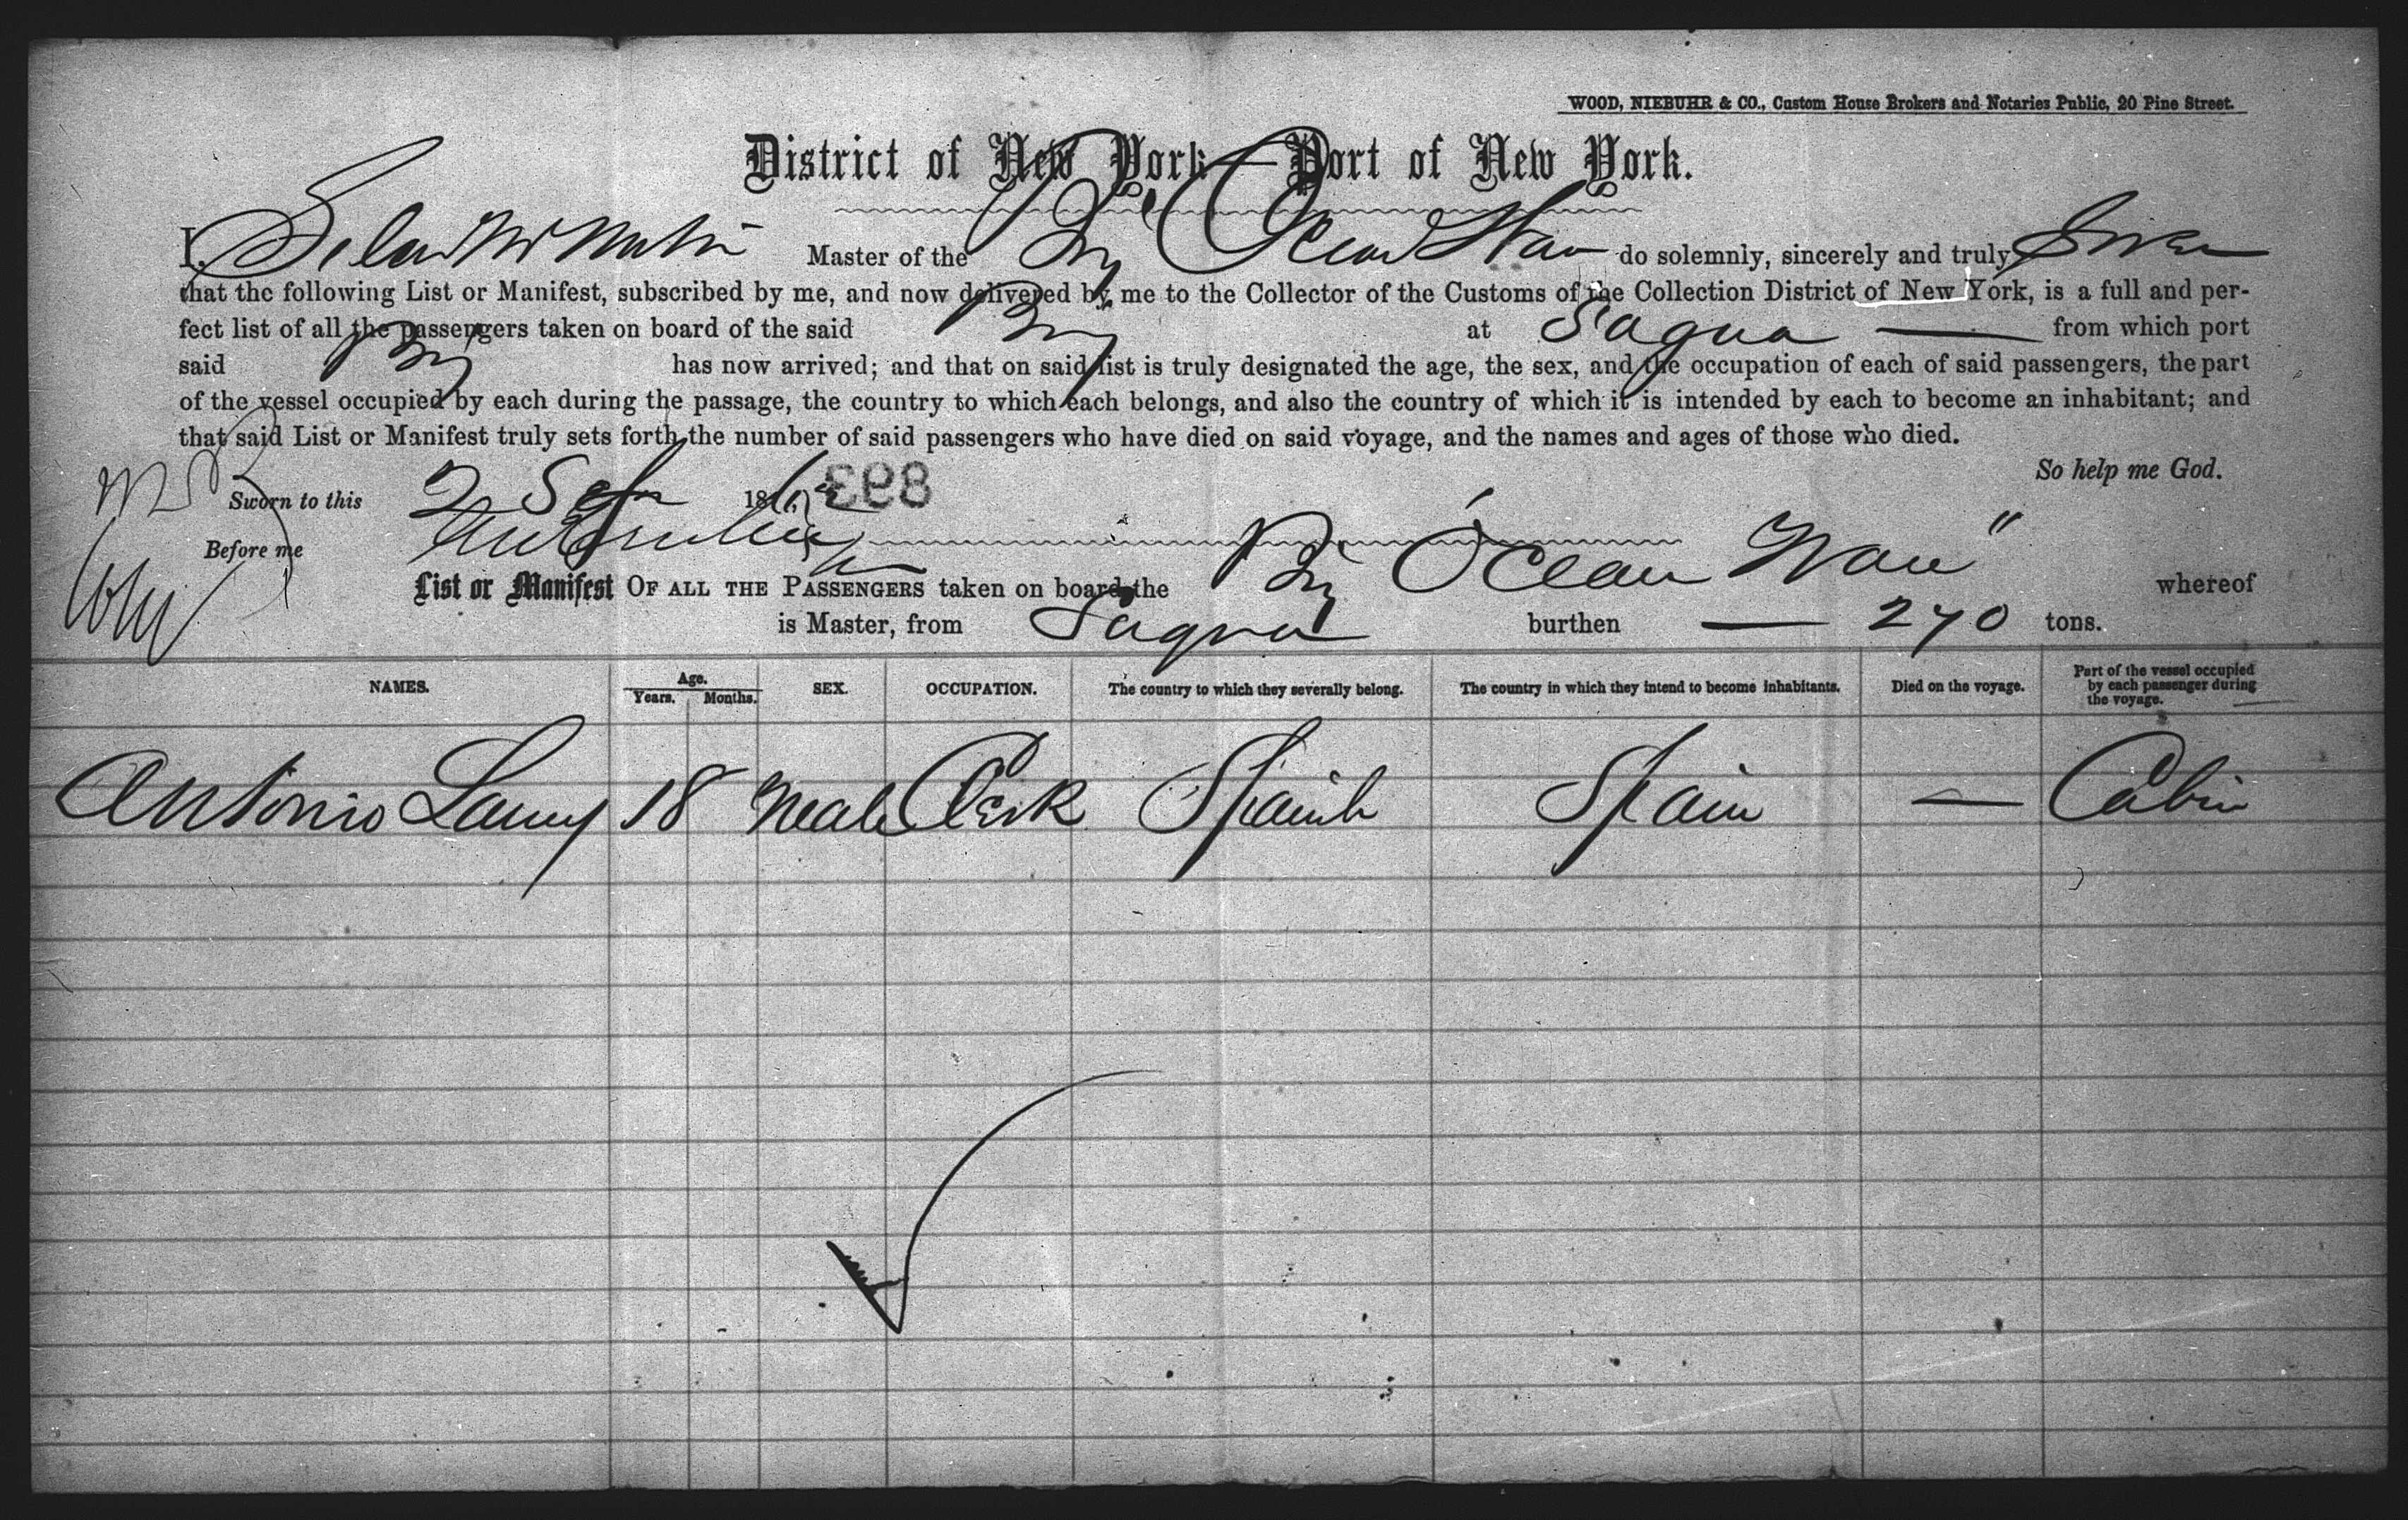 WOOD, NIEBUHR & CO., Custom House Brokers and Notaries Public, 20 Pine Street.
District of New York—Port of New York.
I, Master of the Brig Ocean Wave do solemnly, sincerely and truly Swear
that the following List or Manifest, subscribed by me, and now delivered by me to the Collector of the Customs of the Collection District of New York, is a full and per-
fect list of all the passengers taken on board of the said Brig at Sagua — from which port
said Brig has now arrived; and that on said list is truly designated the age, the sex, and the occupation of each of said passengers, the part
of the vessel occupied by each during the passage, the country to which each belongs, and also the country of which it is intended by each to become an inhabitant; and
that said List or Manifest truly sets forth the number of said passengers who have died on said voyage, and the names and ages of those who died.
So help me God.
Sworn to this 2 Sep 186 893
Before me
List or Manifest OF ALL THE PASSENGERS taken on board the Brig "Ocean Wave" whereof
is Master, from Sagua burthen — 270 tons.
NAMES. Age. Years. Months. SEX. OCCUPATION. The country to which they severally belong. The country in which they intend to become inhabitants. Died on the voyage. Part of the vessel occupied by each passenger during the voyage.
Antonio 18 Male Clerk Spain — Cabin